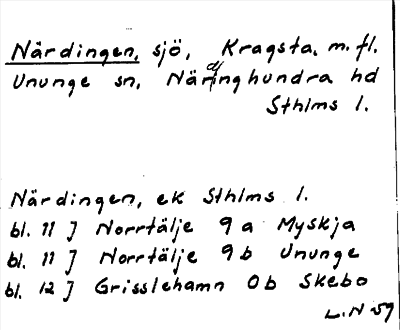 Närdingen, sjö, Kragsta, m.fl.
Ununge sn, Närdinghundra hd
Sthlms l.
Närdingen, ek Sthlms l.
bl. 11 J Norrtälje 9 a Myskja
bl. 11 J Norrtälje 9 b Ununge
bl. 12 J Grisslehamn 0 b Skebo
L.N 59